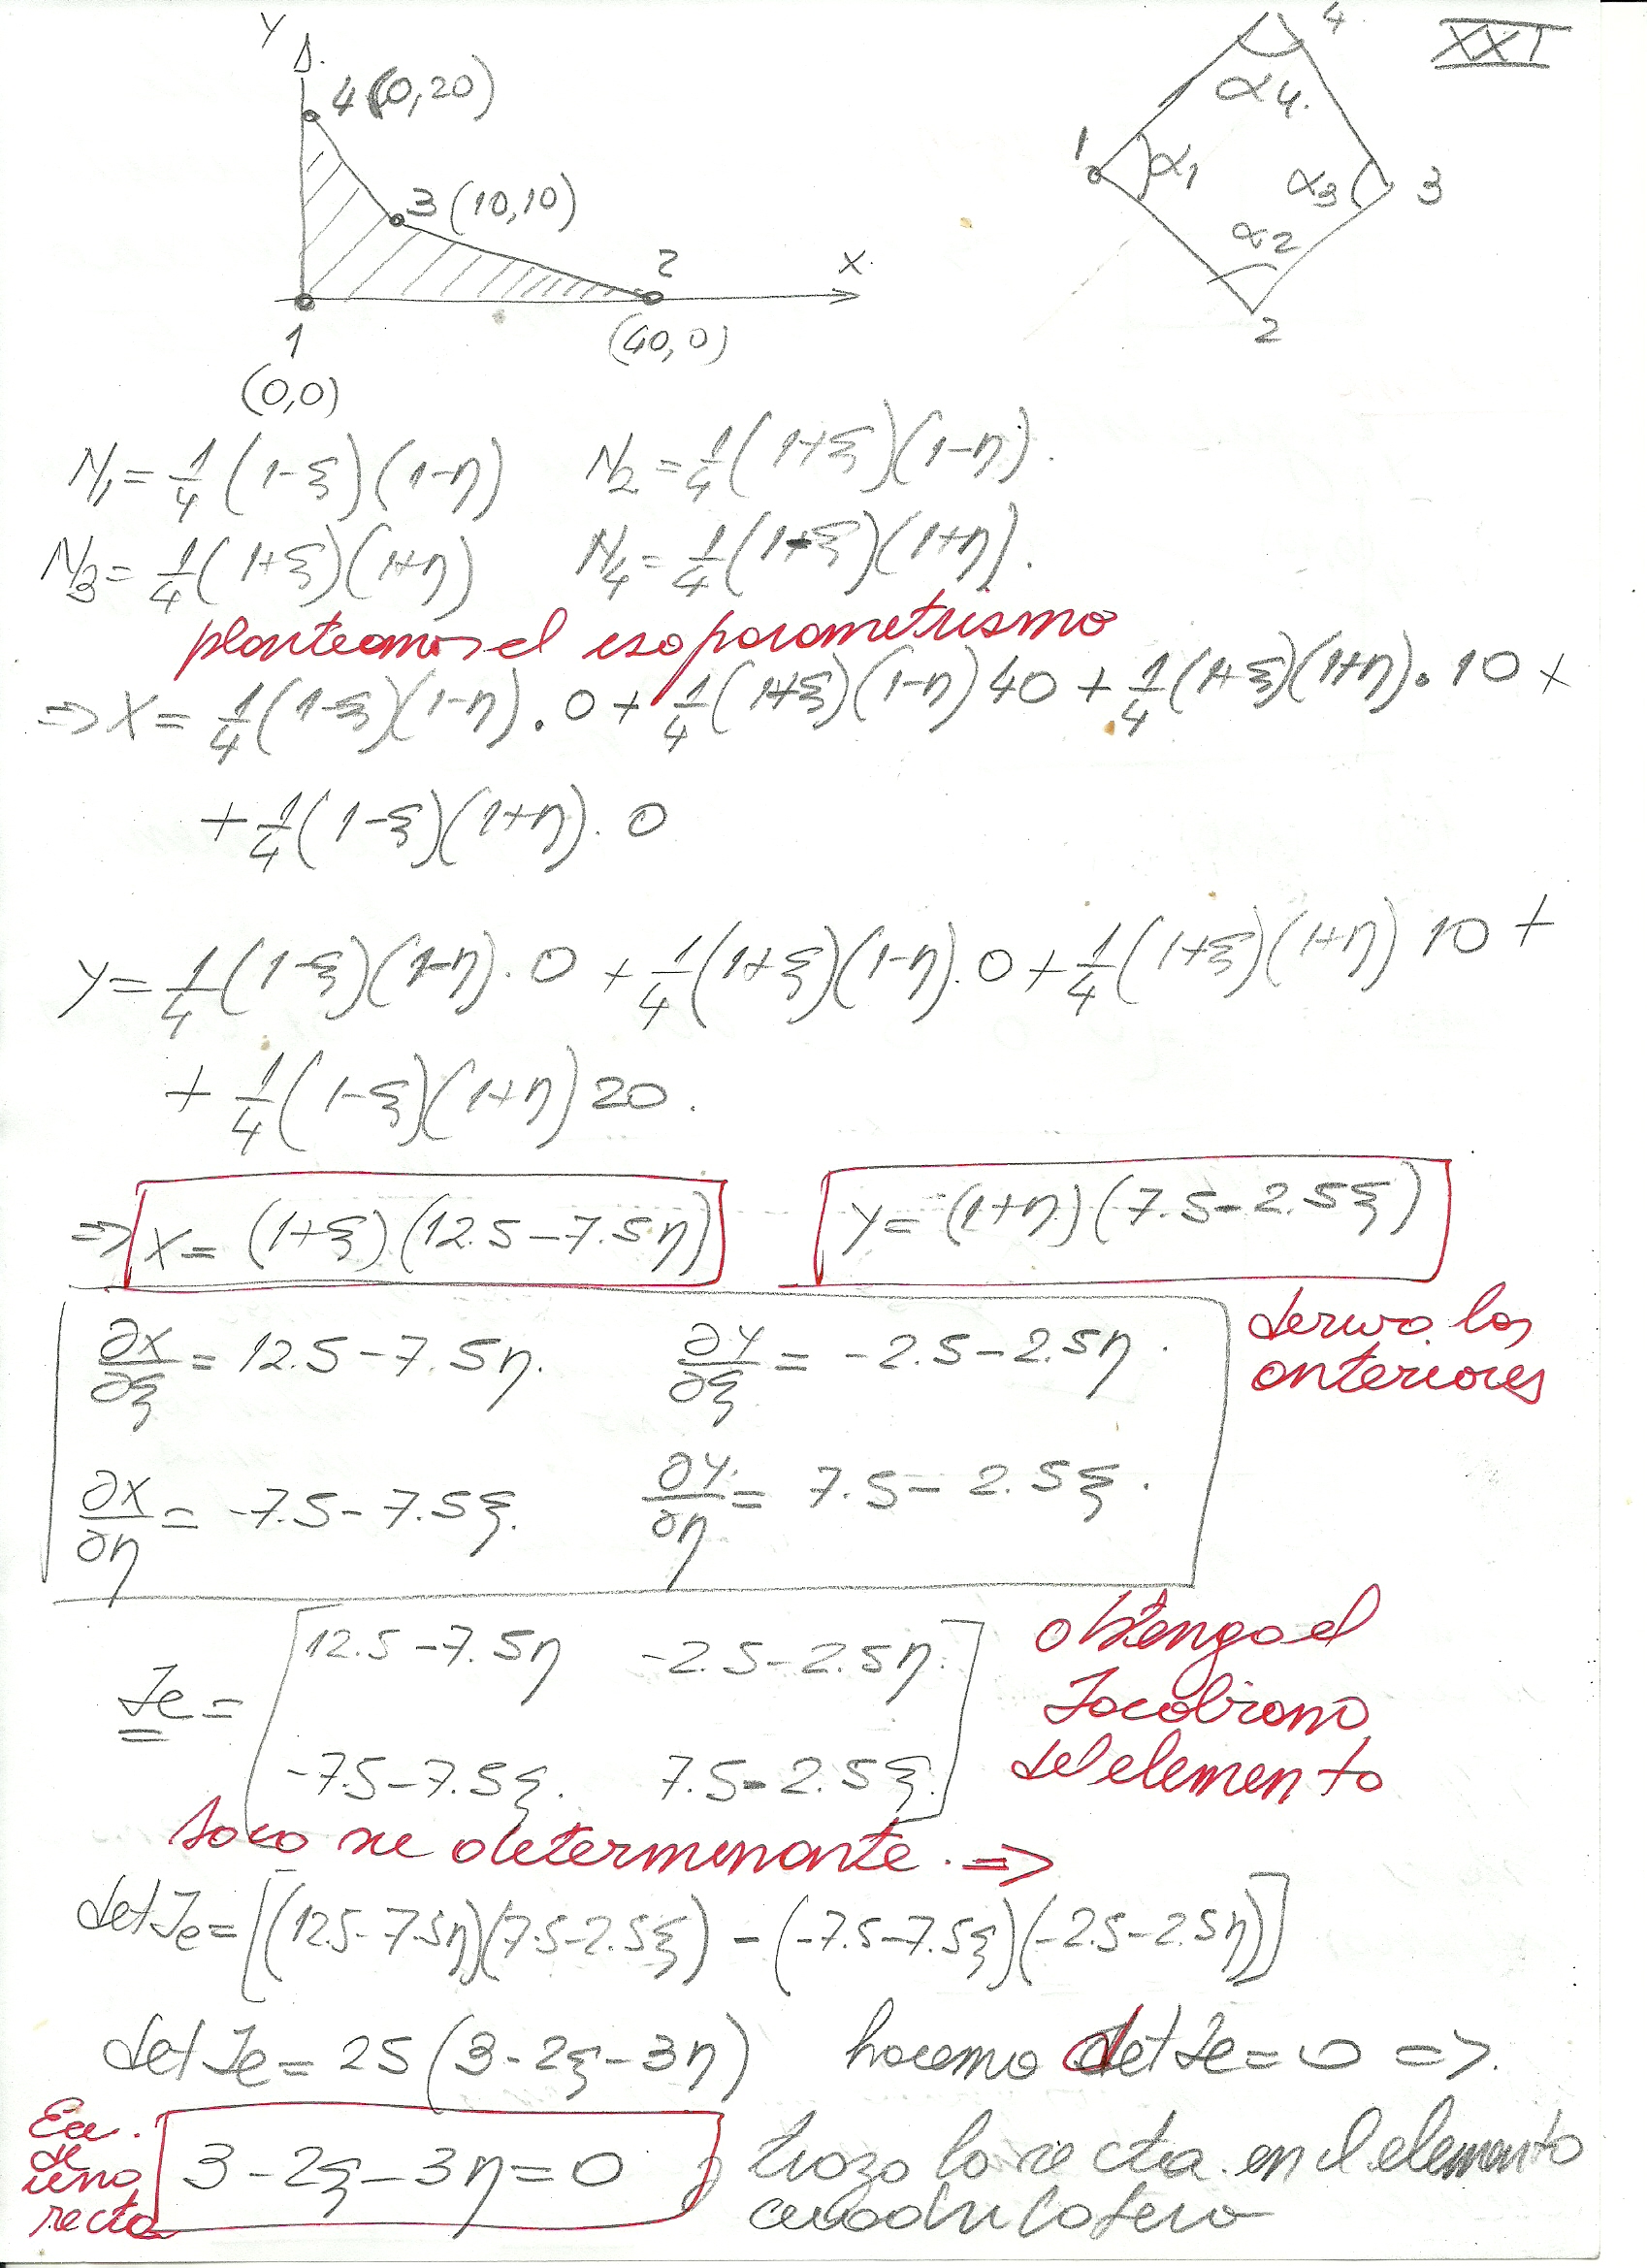 XXI
Y
4 (0,20)
3 (10,10)
2
X
1
(40,0)
(0,0)
4.
α4.
1
α1
α3
3
α2
2
N1 = 1/4 (1-ξ)(1-η)   N2 = 1/4 (1+ξ)(1-η).
N3 = 1/4 (1+ξ)(1+η)   N4 = 1/4 (1-ξ)(1+η).
planteamos el isoparametrismo
⇒ X = 1/4 (1-ξ)(1-η) . 0 + 1/4 (1+ξ)(1-η) 40 + 1/4 (1+ξ)(1+η) . 10 +
+ 1/4 (1-ξ)(1+η) . 0
Y = 1/4 (1-ξ)(1-η) . 0 + 1/4 (1+ξ)(1-η) . 0 + 1/4 (1+ξ)(1+η) 10 +
+ 1/4 (1-ξ)(1+η) 20.
⇒ X = (1+ξ)(12.5-7.5η)   Y = (1+η)(7.5-2.5ξ)
derivo las
anteriores
∂X/∂ξ = 12.5-7.5η.   ∂Y/∂ξ = -2.5-2.5η.
∂X/∂η = -7.5-7.5ξ.   ∂Y/∂η = 7.5-2.5ξ.
Je = [12.5-7.5η   -2.5-2.5η.
-7.5-7.5ξ.   7.5-2.5ξ.]
obtengo el
Jacobiano
del elemento
saco su determinante. ⇒
det Je = [(12.5-7.5η)(7.5-2.5ξ) - (-7.5-7.5ξ)(-2.5-2.5η)]
det Je = 25 (3-2ξ-3η)   hacemo det Je = 0 ⇒.
Ec.
de
una
recta
3-2ξ-3η = 0
trazo la recta en el elemento
cuadrilatero